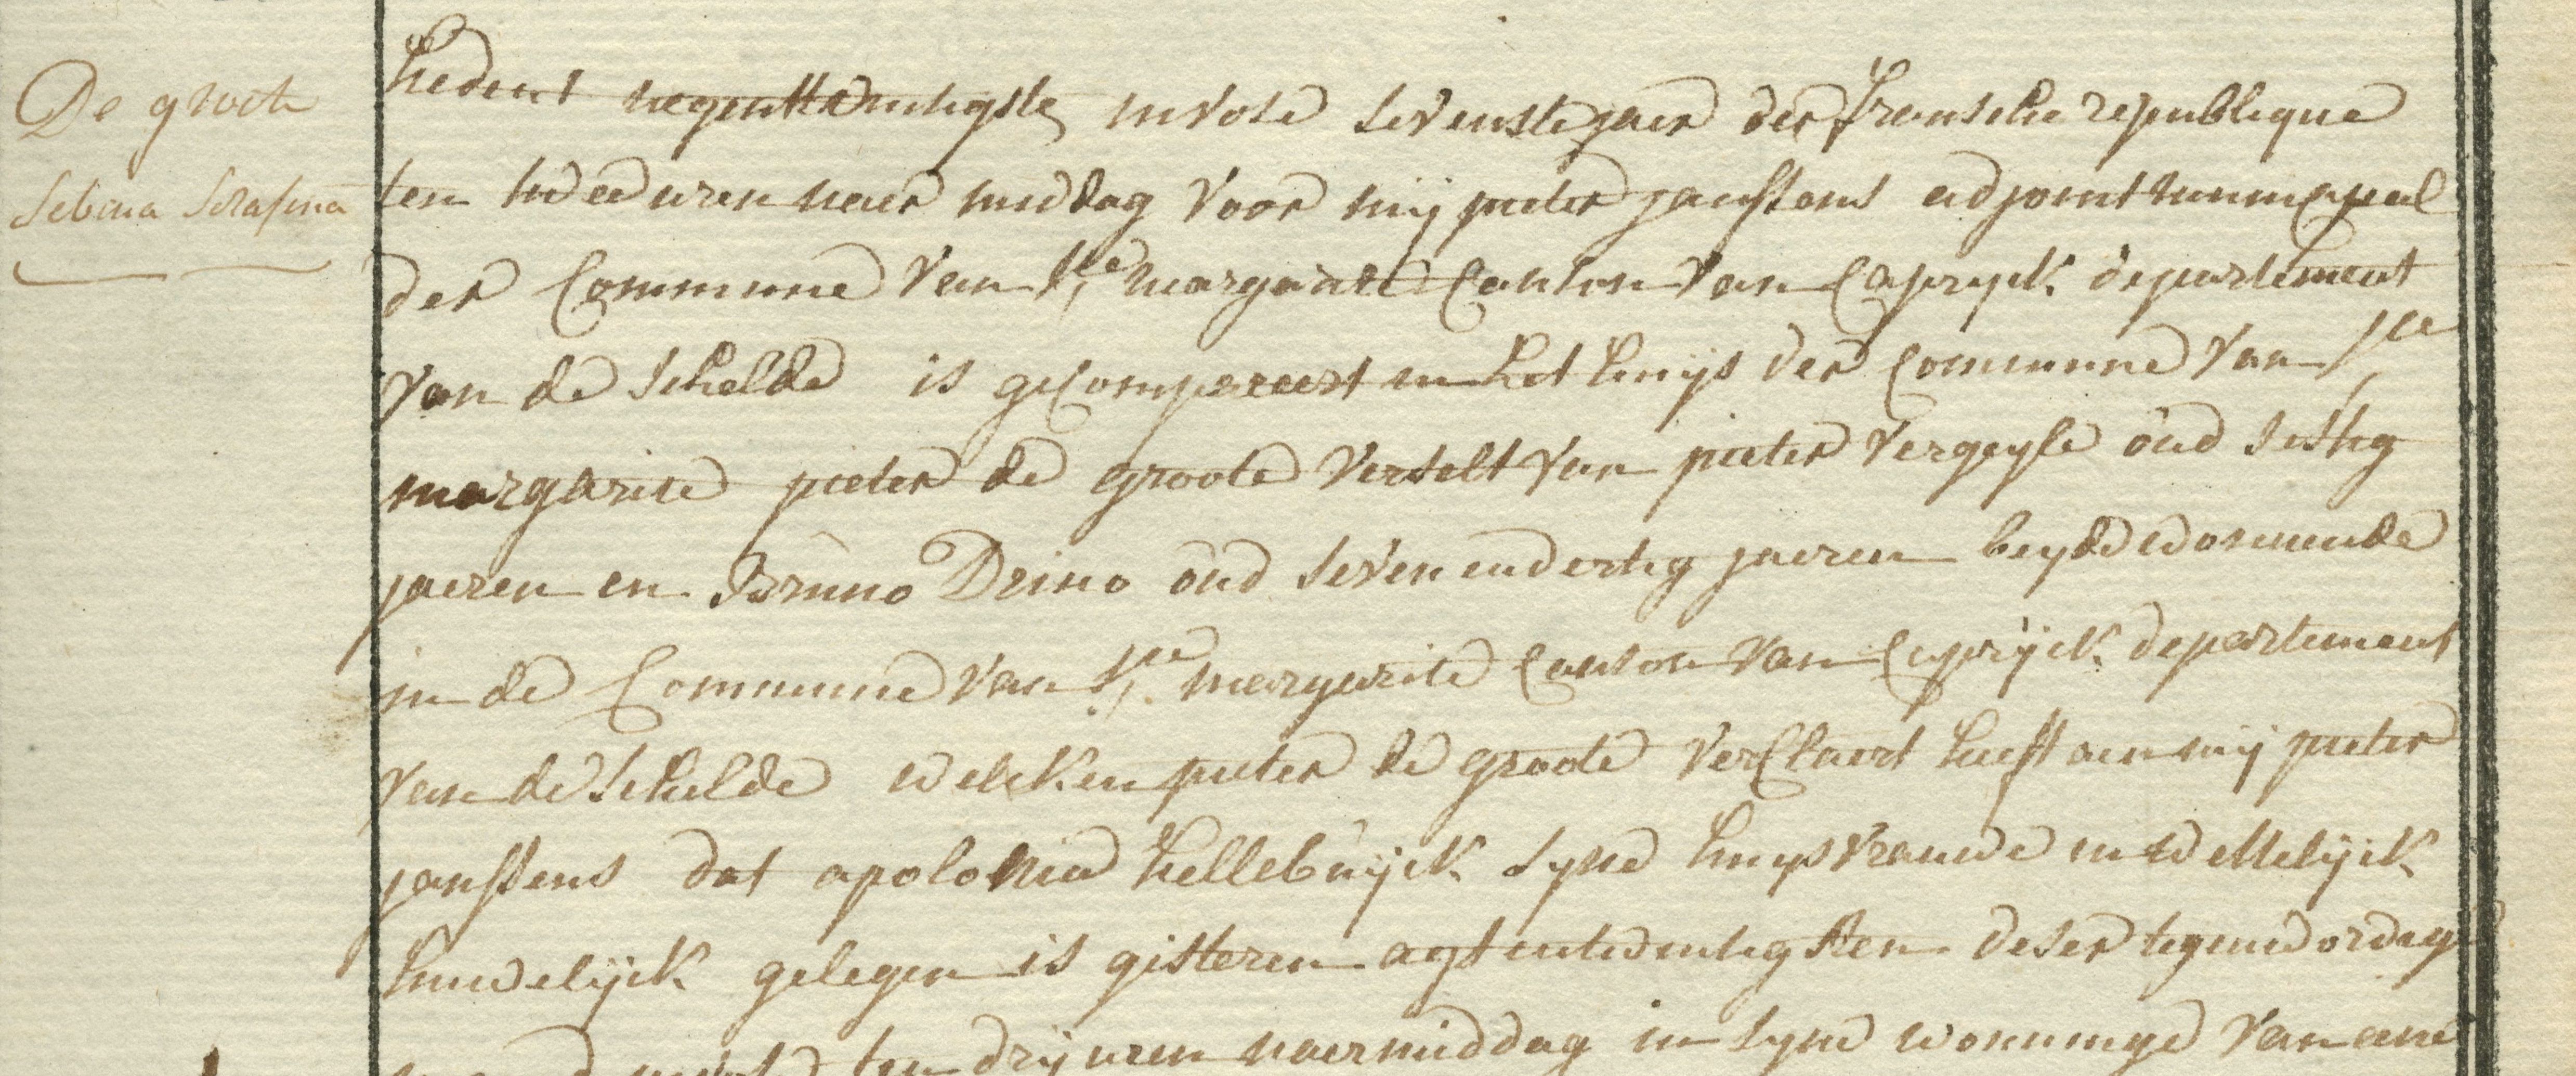 De groote
Sebina Serafina
hedent negentwintigste nivose sevenste jaer der fransche republique
ten twee uren naer middag voor mij pieter janssens adjoint municipael
der Commune van Ste margarite Canton van Capryck departement
van de Schelde is gecompareert in het huijs der Commune van Ste
margarite pieter de groote verselt van pieter vergeyle oud sestig
jaeren en Bruno Drino oud sevenendertig jaeren beyde woonende
in de Commune van Ste margarite Canton van Caprijck departement
van de Schelde welcken pieter de groote verClaert heeft aen mij pieter
janssens dat apolonia hellebuijck syne huysvrauwe in wettelijck
huwelijck gelegen is gisteren agtentwintigsten deser tegenwordige
ten drij uren naermiddag in syne wooninge van eene